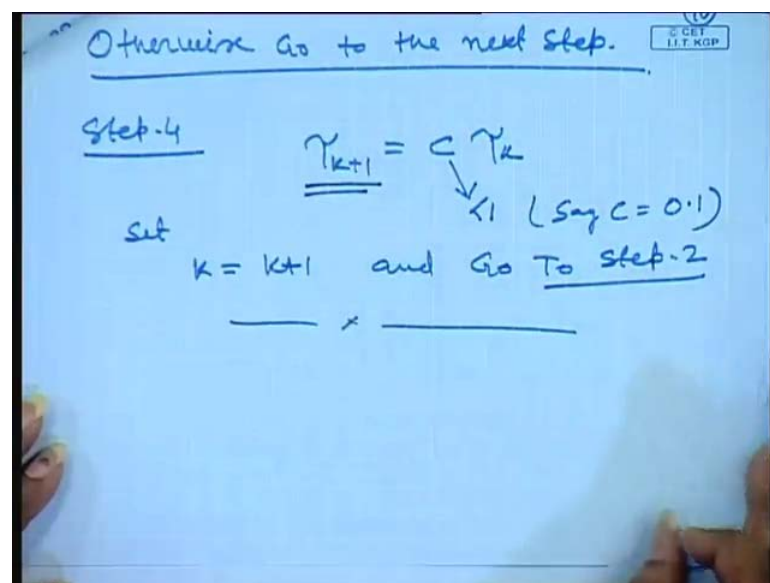 Otherwise Go to the next step.
© CET
I.I.T. KGP
Step-4
γ_{k+1} = C γ_k
<1 (Say C = 0.1)
Set
k = k+1 and Go To Step-2